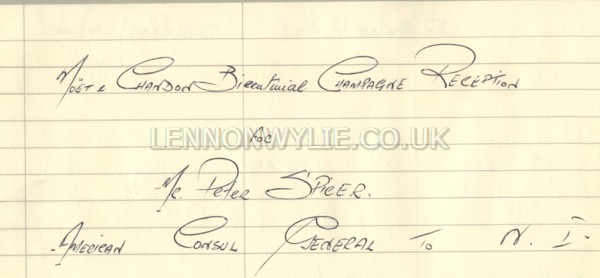 Möet & Chandon Bicentinial Champagne Reception
LENNONWYLIE.CO.UK
for
Mr. Peter Spicer.
American Consul General To N. I.